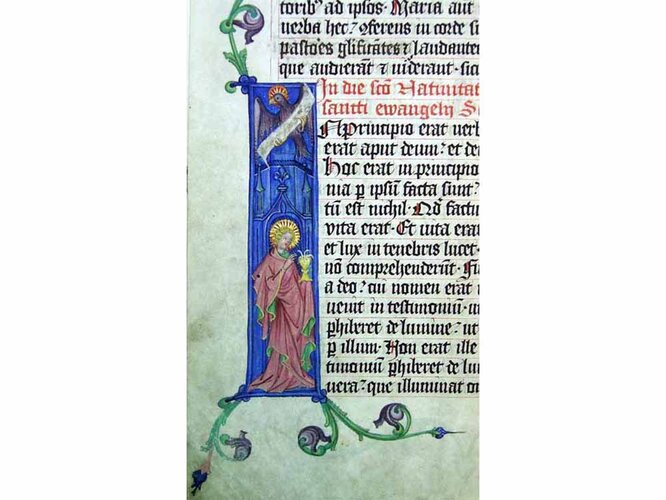 toribꝰ ad ipsos. Maria aut
uerba hec: ⁊ferens in corde s
pastoēs glīficātes ⁊ laudante
que audierāt ⁊ uiderant. sic
In die scō Natiuitat
sancti ewangelij S
N Principio erat uerb
erat aput deum: et de
Hoc erat in principio
nia p ipsum facta sunt:
tū est nichil. Qđ factu
vita erat. Et uita erat
et lux in tenebris lucet.
nō comprehenderūt. Fu
a deo: cui nomen erat i
uenit in testimonium. u
phiberet de lumine: ut
p illum. Non erat ille
timonium phiberet de lu
uera: que illuminat o